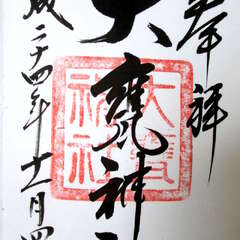 奉拝
大甕神社
大甕神社
成二十四年十一月四